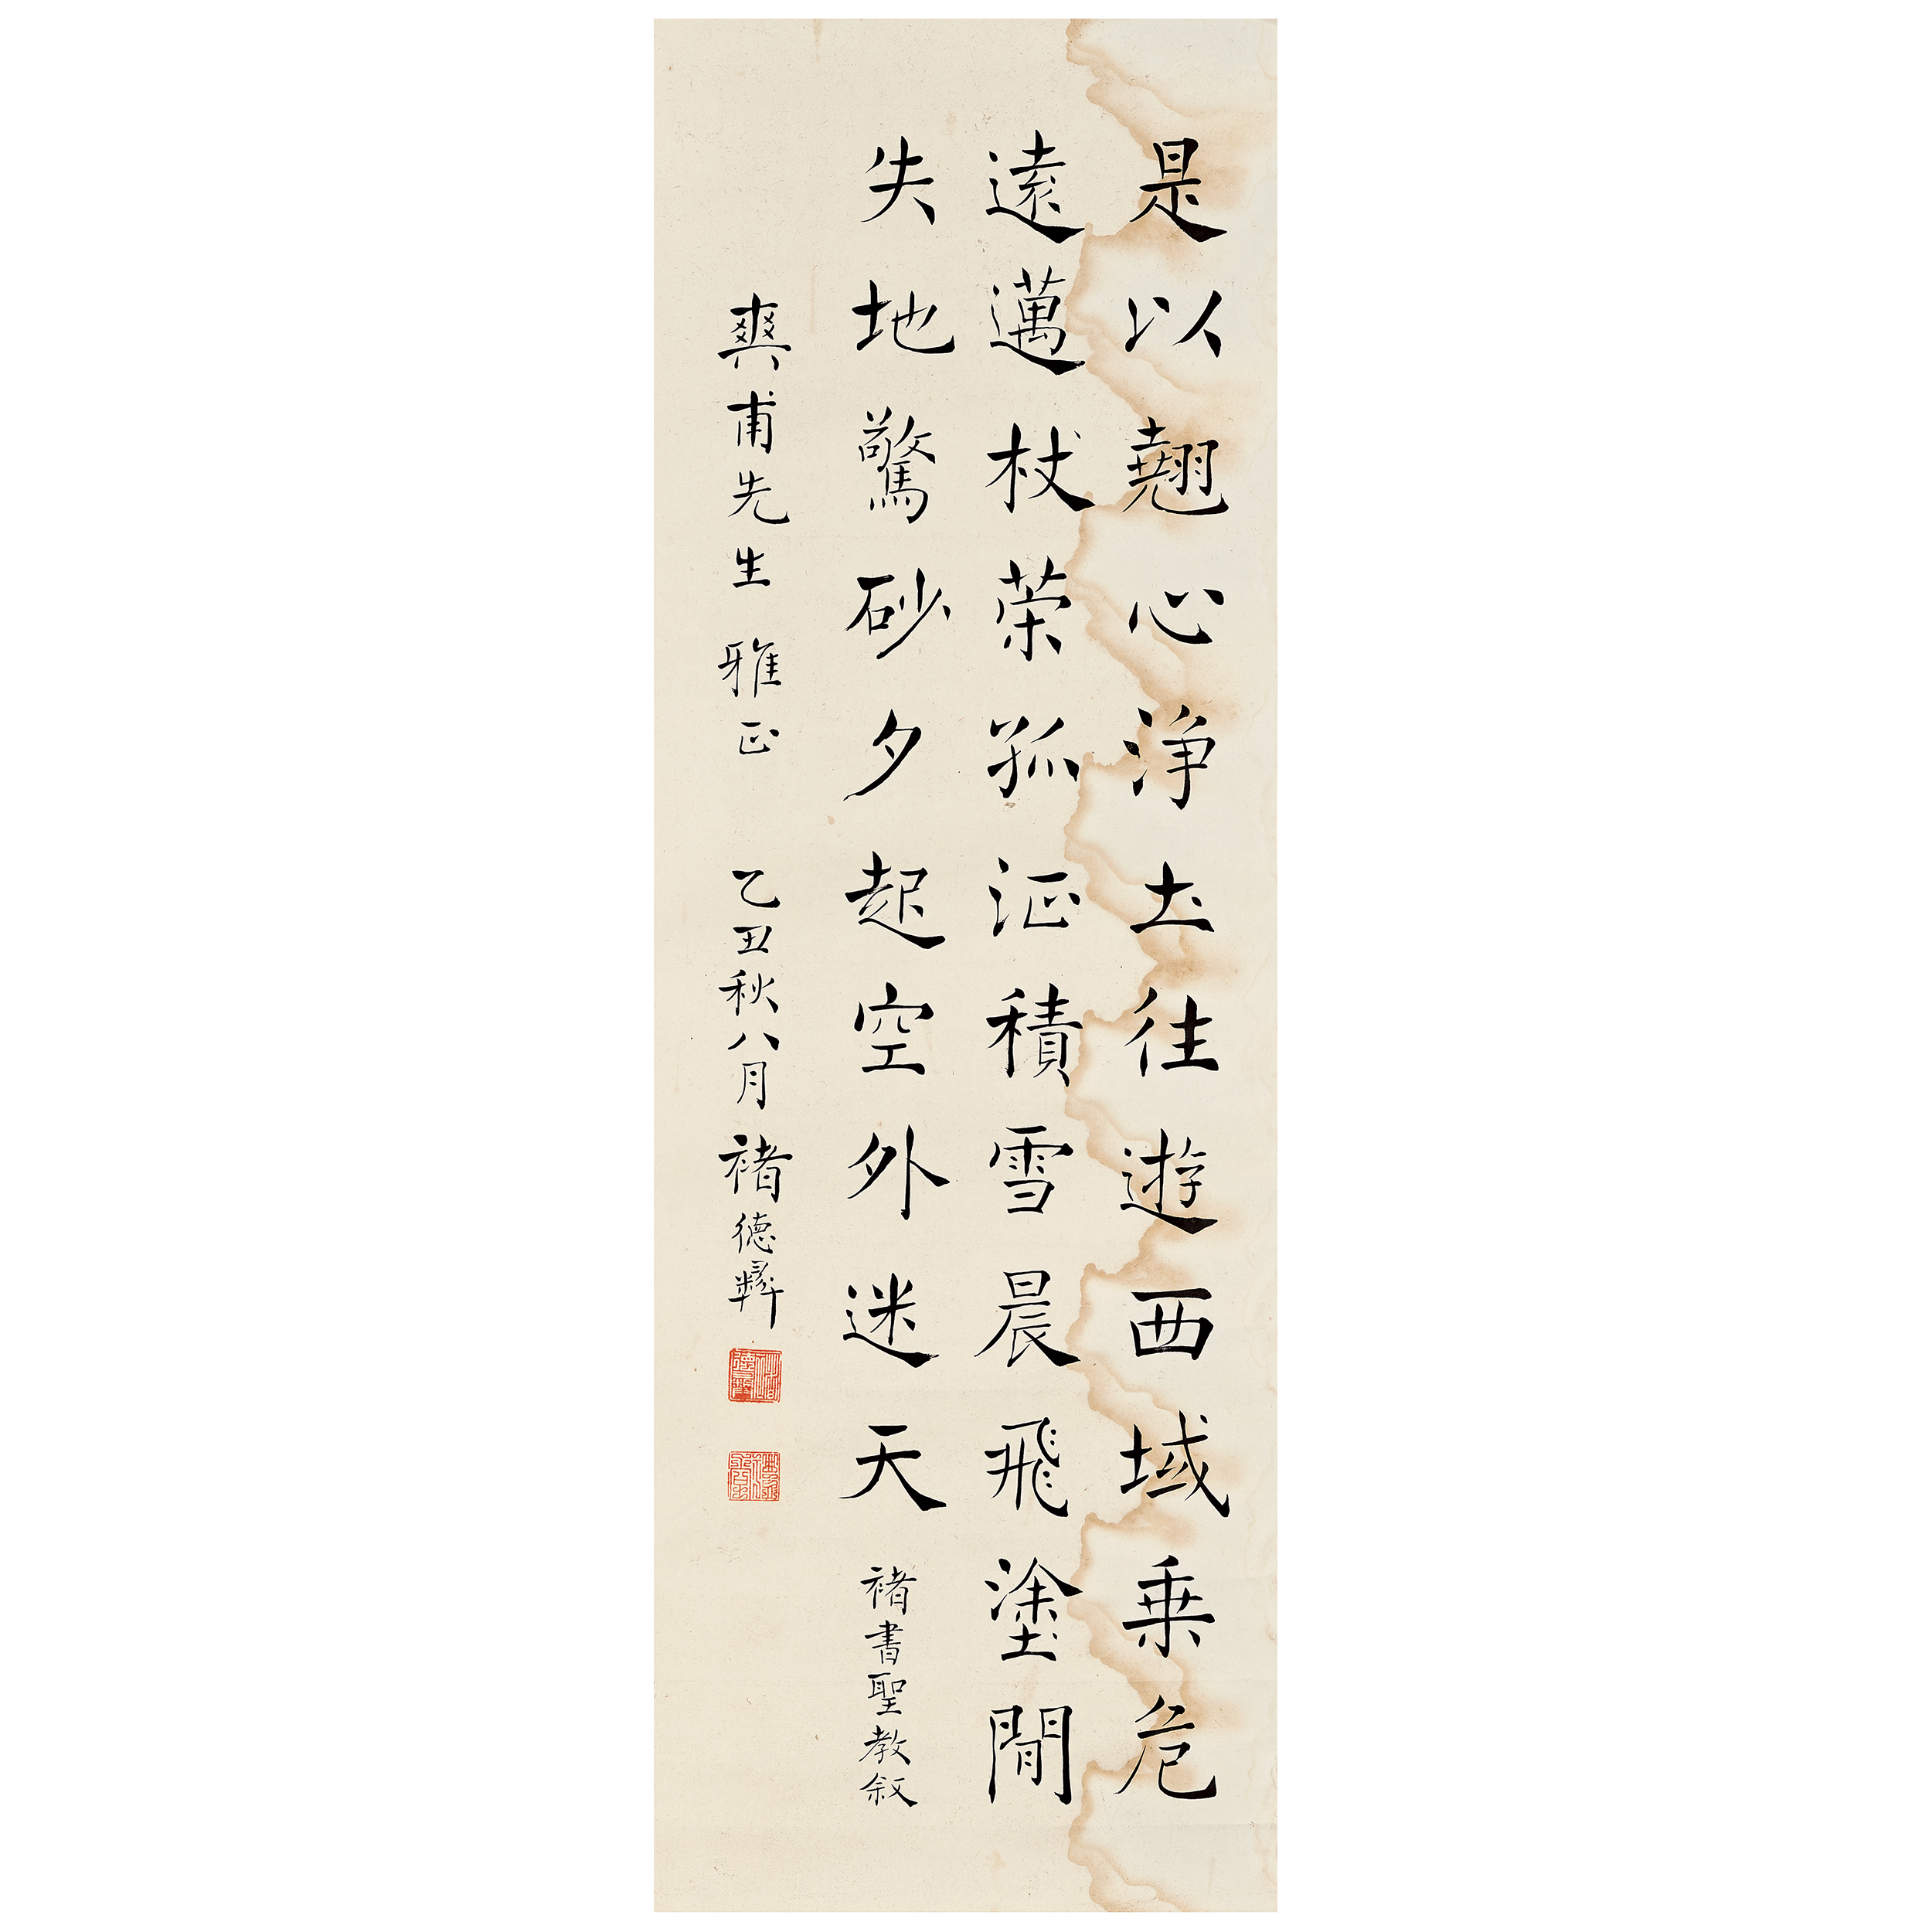 是以翹心淨土往遊西域乘危
遠邁杖策孤征積雪晨飛塗閒
失地驚砂夕起空外迷天 褚書聖教敘
爽甫先生 雅正 乙丑秋八月 褚德彝